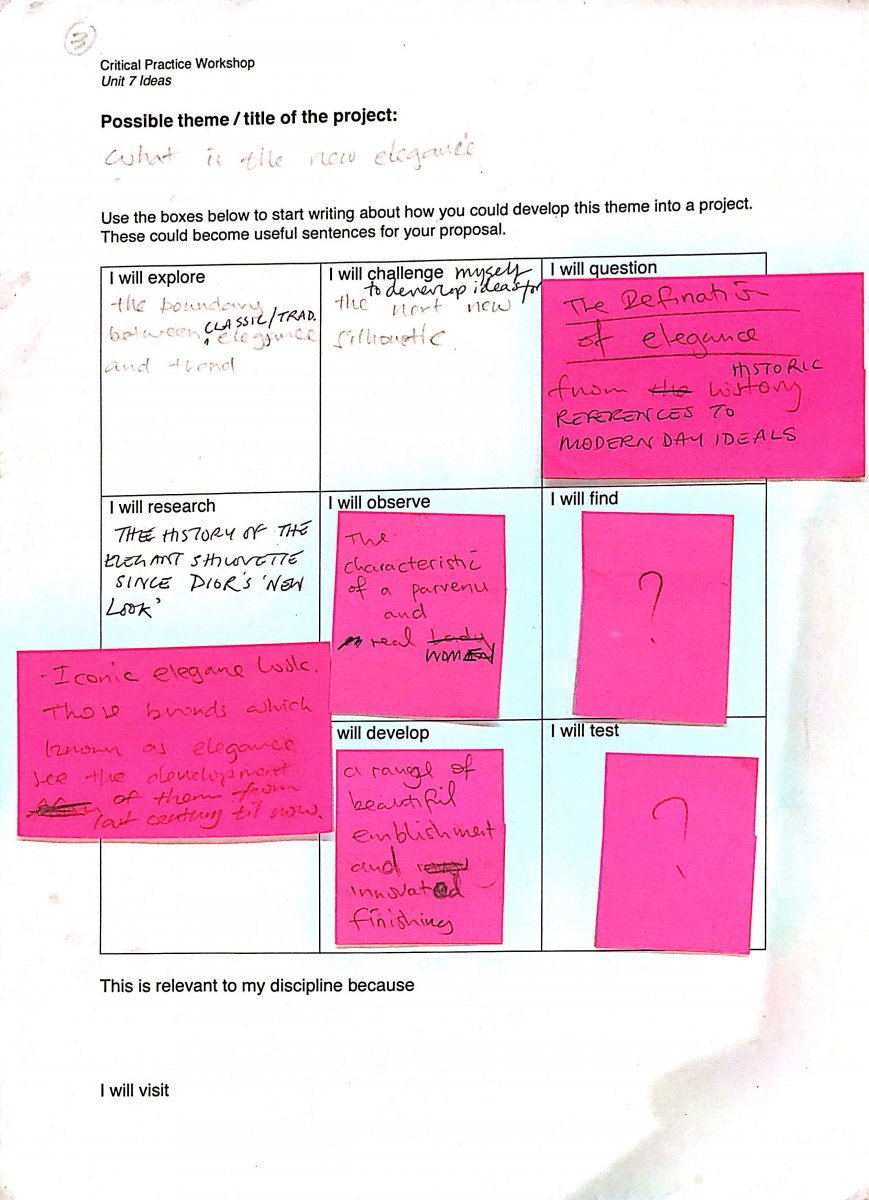 3
Critical Practice Workshop
Unit 7 Ideas
Possible theme / title of the project:
What is the new elegance
Use the boxes below to start writing about how you could develop this theme into a project.
These could become useful sentences for your proposal.
I will explore
the boundary
between CLASSIC/TRAD. elegance
and trend
I will challenge myself
to deverlop ideas for
the next new
silhouette
I will question
The Definati
of elegance
HISTORIC
from the history
REFERENCES TO
MODERN DAY IDEALS
I will research
THE HISTORY OF THE
ELEGANT SHILOVETTE
SINCE DIOR'S 'NEW
LOOK'
I will observe
The
characteristic
of a parvenu
and
real Lady
WOMEN
I will find
?
- Iconic elegane look.
Those brands which
known as elegance
see the development
of them from
last century til now.
will develop
a range of
beautiful
emblishment
and
innovated
finishing
I will test
?
This is relevant to my discipline because
I will visit